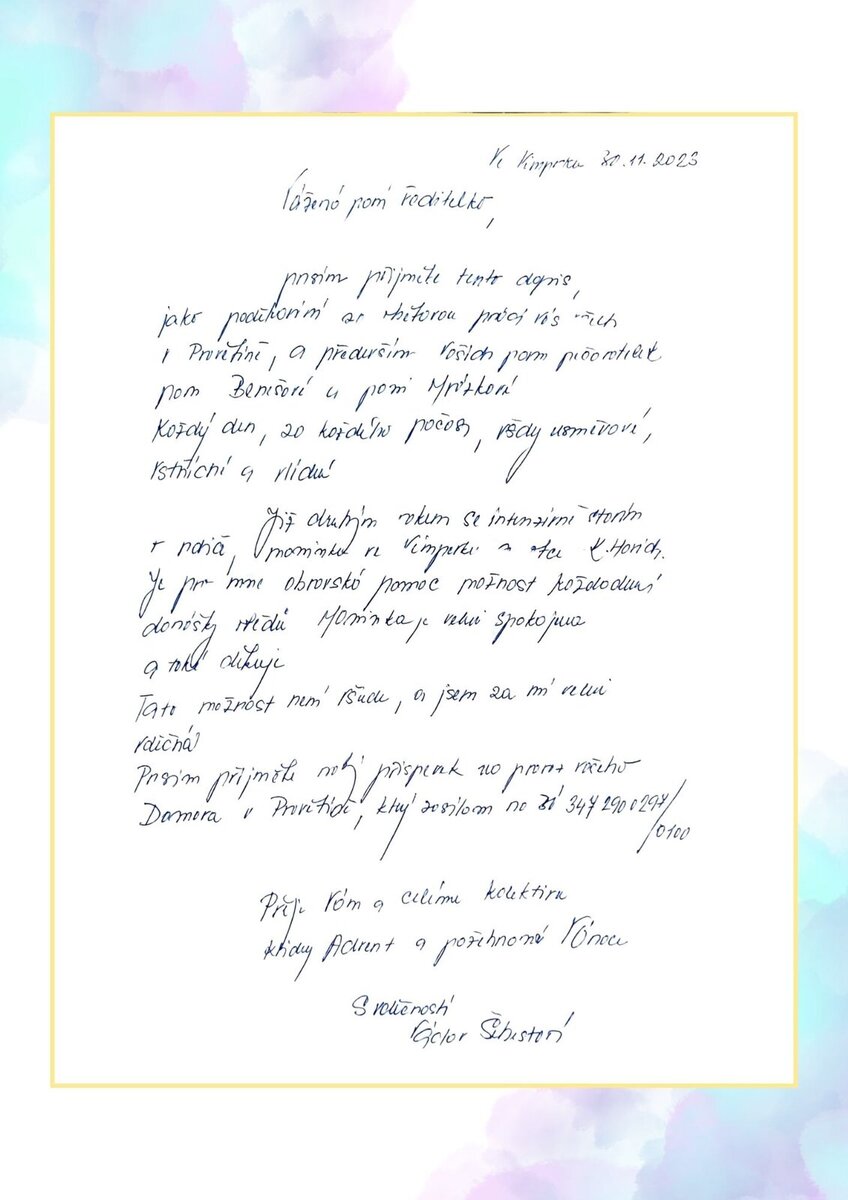 Ve Vimperku 30.11.2023
Vážená paní ředitelko,
prosím přijměte tento dopis,
jako poděkování za práci vás všech
v Pravětíně, a především Vašich paní pečovatelek
paní Benešové a paní Mrázkové
Každý den, za každého počasí, vždy usměvavé,
vstřícné a vlídné
Již druhým rokem se intenzivně starám
o rodiče, maminku ve Vimperku a otce K. Horách.
Je pro mne obrovská pomoc možnost každodenní
donášky obědů Maminka je velmi spokojena
a také děkuje
Tato možnost není všude, a jsem za ní velmi
vděčná
Prosím přijměte malý příspěvek na provoz vašeho
Domova v Pravětíně, který zasílám na 347290029/
0100
Přeji Vám a celému kolektivu
klidný Advent a požehnané Vánoce
S vděčností